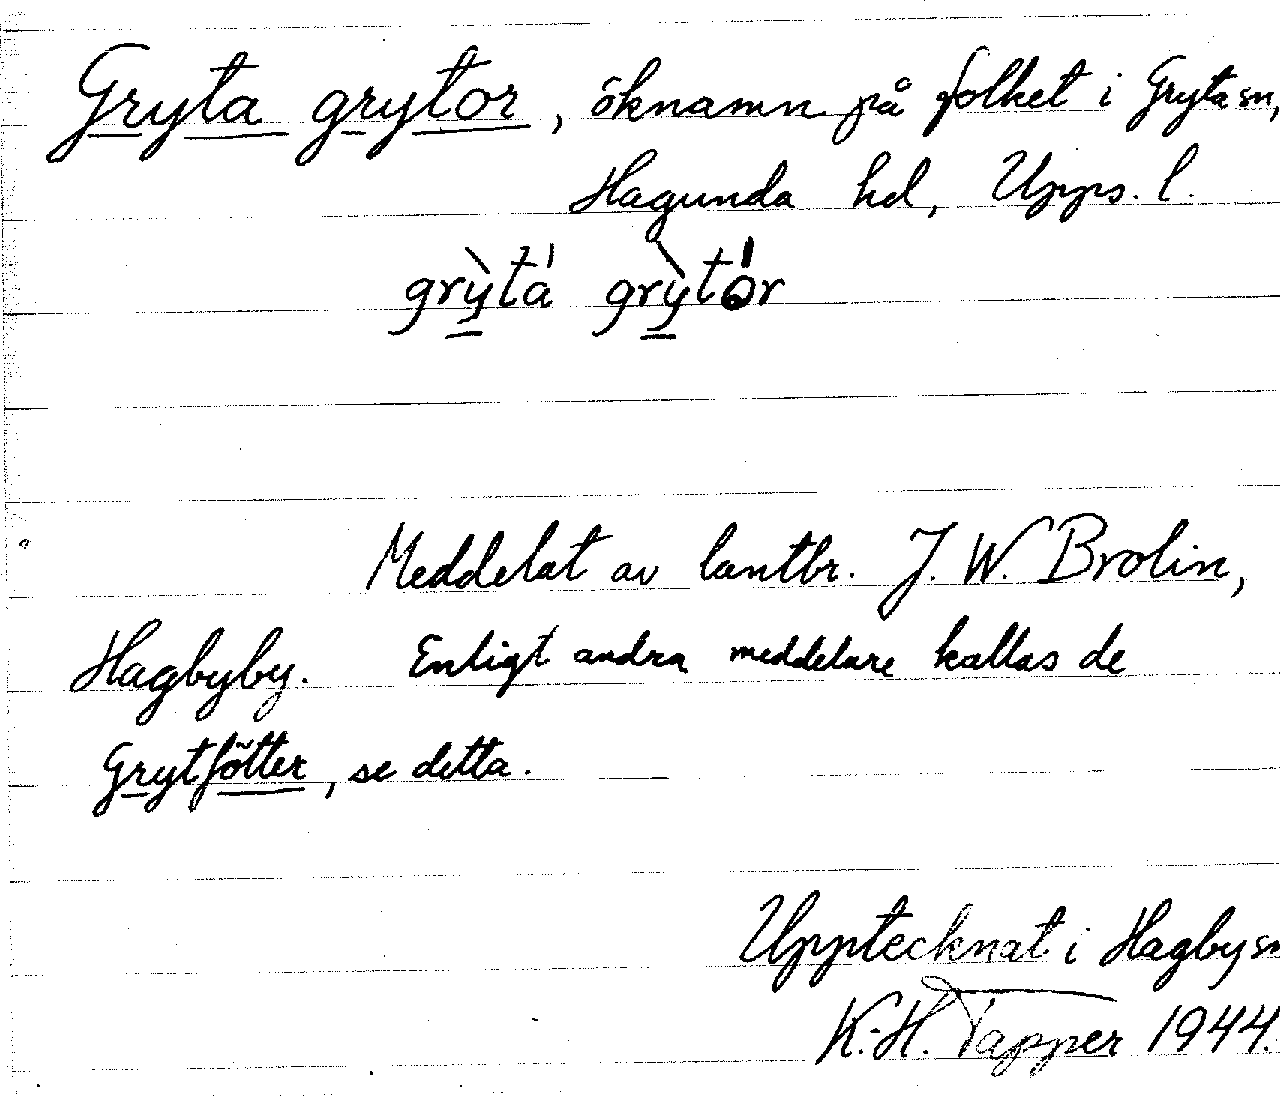 Gryta grytor, öknamn på folket i Gryta sn,
Hagunda hd, Upps. l.
grỳtá grỳtór
Meddelat av lantbr. J. W. Brolin,
Hagbyby. Enligt andra meddelare kallas de
Grytfötter, se detta.
Upptecknat i Hagby sn
K.-H. Tapper 1944.